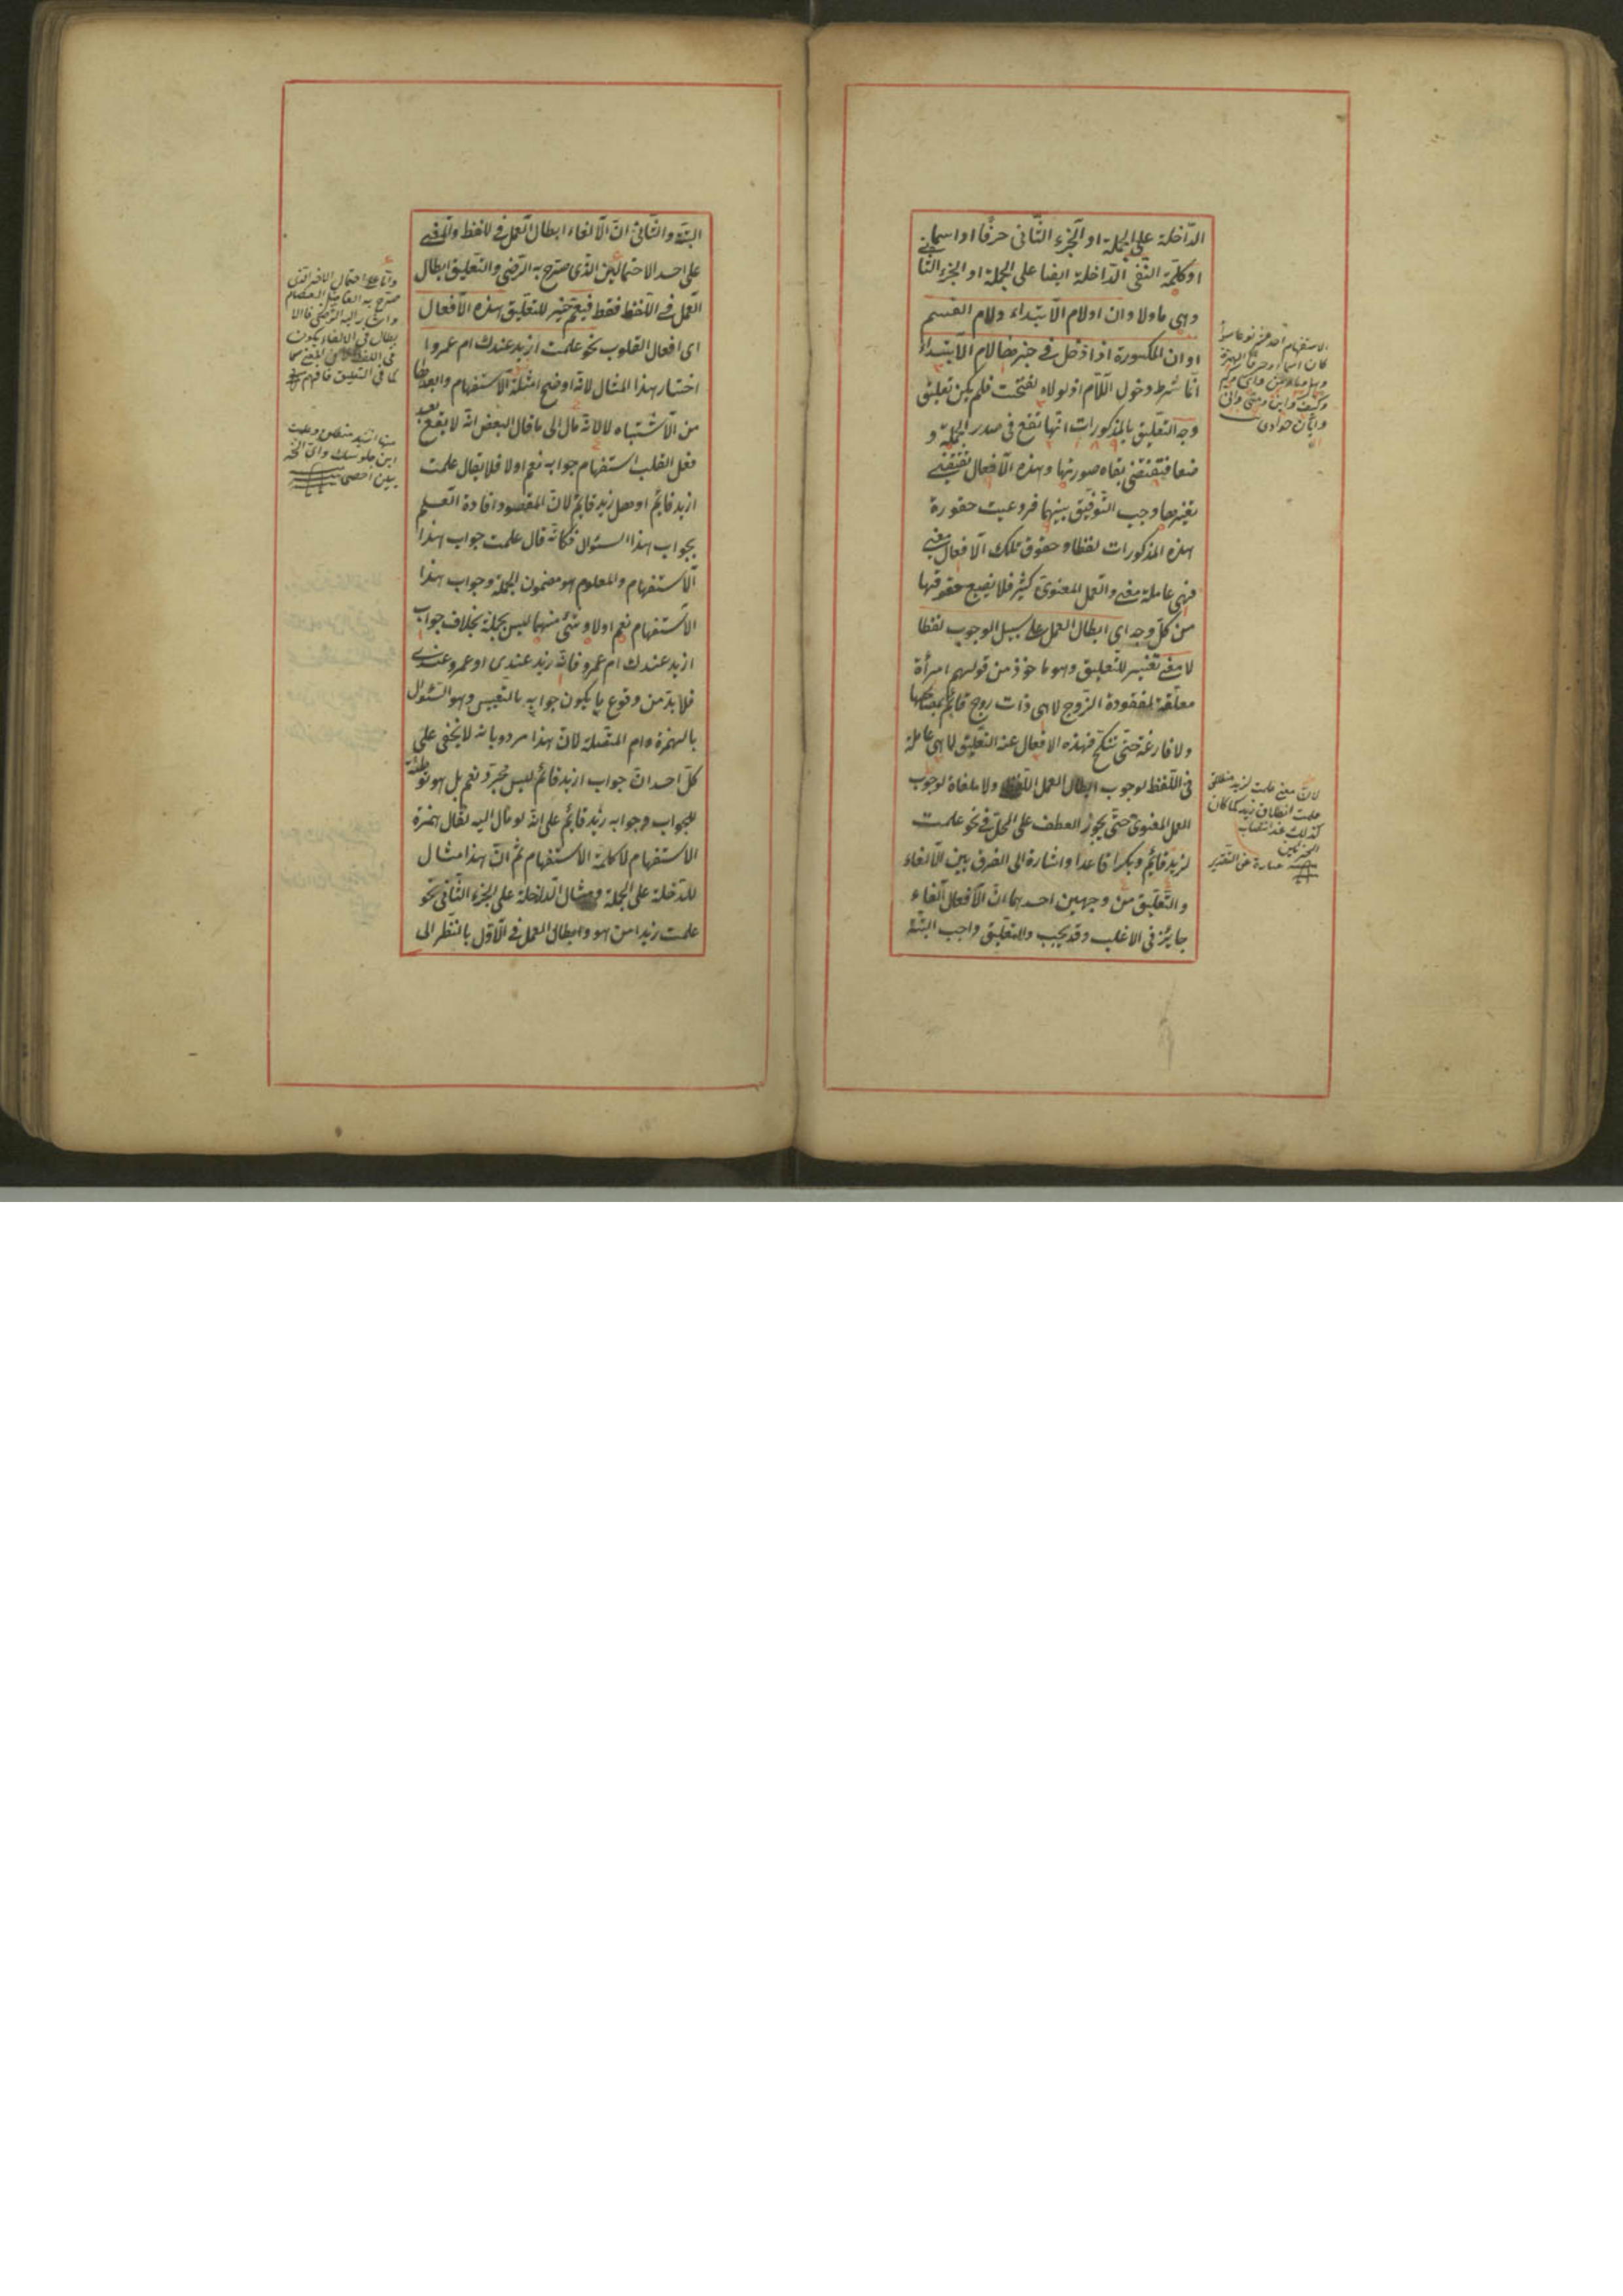 الداخلة على الجملة او الجزء الثانى حرفا او اسما فى
او كلمة النفى الداخلة ايضا على الجملة او الجزء الثا
وهى ما ولا وان او لام الابتداء ولام القسم
او ان المكسورة اذا دخل فى خبرها لام الابتداء
انما شرط دخول اللام اذ لولاه لفتحت فلم يكن تعليق
وجه التعليق بالمذكورات انها تقع فى صدر الجملة و
ضعا فتقتضى بقاء صورتها وهذه الافعال تقتضى
تغيرها وجب التوفيق بينهما فروعيت حقورة
هذه المذكورات لفظا وحقوق تلك الافعال معنى
فهى عاملة معنى والعمل المعنوى كثير فلا يضيع حقوقها
من كل وجه اى ابطال العمل على سبيل الوجوب لفظا
لا معنى تفسير للتعليق وهو ماخوذ من قولهم امرأة
معلقة لمفقودة الزوج لا هى ذات زوج قائم بمصالحها
ولا فارغة حتى تنكح فهذه الافعال عند التعليق لا هى عاملة
فى اللفظ لوجوب ابطال العمل اللفظى ولا ملغاة لوجوب
العمل المعنوى حتى يجوز العطف على المحل فى نحو علمت
لزيد قائم وبكرا قاعدا واشارة الى الفرق بين الالغاء
والتعليق من وجهين احدهما ان الافعال الغاء
جايز فى الاغلب وقد يجب والتعليق واجب البتة
الاستفهام
كان اسما او حرفا كالهمزة
وكيف واين ومتى وانى
وايان
لان معنى علمت لزيد منطلق
علمت انطلاق زيد كما كان
كذلك عند انتصاب
الجزئين
عبارة عن التقدير
البتة والثانى ان الالغاء ابطال العمل فى اللفظ والمعنى
على احد الاحتمالين الذى صرح به الرضى والتعليق ابطال
العمل فى اللفظ فقط فبعم خير للتعليق هذه الافعال
اى افعال القلوب نحو علمت ازيد عندك ام عمروا
اختار هذا المثال لانه اوضح امثلة الاستفهام وابعدها
من الاشتباه لا لانه مال الى ما قال البعض انه لا يقع بعد
فعل القلب استفهام جوابه نعم او لا فلا يقال علمت
ازيد قائم او هل زيد قائم لان المقصود افادة العلم
بجواب هذا السئوال فكانه قال علمت جواب هذا
الاستفهام والمعلوم هو مضمون الجملة وجواب هذا
الاستفهام نعم او لا وشئ منهما ليس بجملة بخلاف جواب
ازيد عندك ام عمرو فانه زيد عندى او عمرو عندى
فلا بد من وقوع ما يكون جوابه بالتعيين وهو السئوال
بالهمزة وام المتصلة لان هذا مردود بانه لا يخفى على
كل احد ان جواب ازيد قائم ليس مجرد نعم بل هو توطئة
للجواب وجوابه زيد قائم على انه لو مال اليه لقال همزة
الاستفهام لا كلمة الاستفهام ثم ان هذا مثال
للداخلة على الجملة ومثال الداخلة على الجزء الثانى نحو
علمت زيدا من هو وابطال العمل فى الاول بالنظر الى
واما على احتمال الاخر الذى
صرح به الفاضل العصام
واشار اليه الرضى فالا
بطال فى الالغاء يكون
فى اللفظ
كما فى التعليق فافهم
اين جلوسك